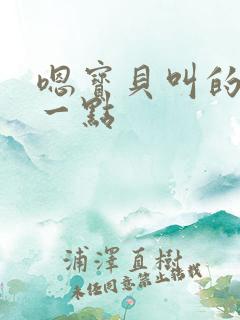 嗯寶貝叫的
一點
浦澤直樹
未任同意禁止轉載